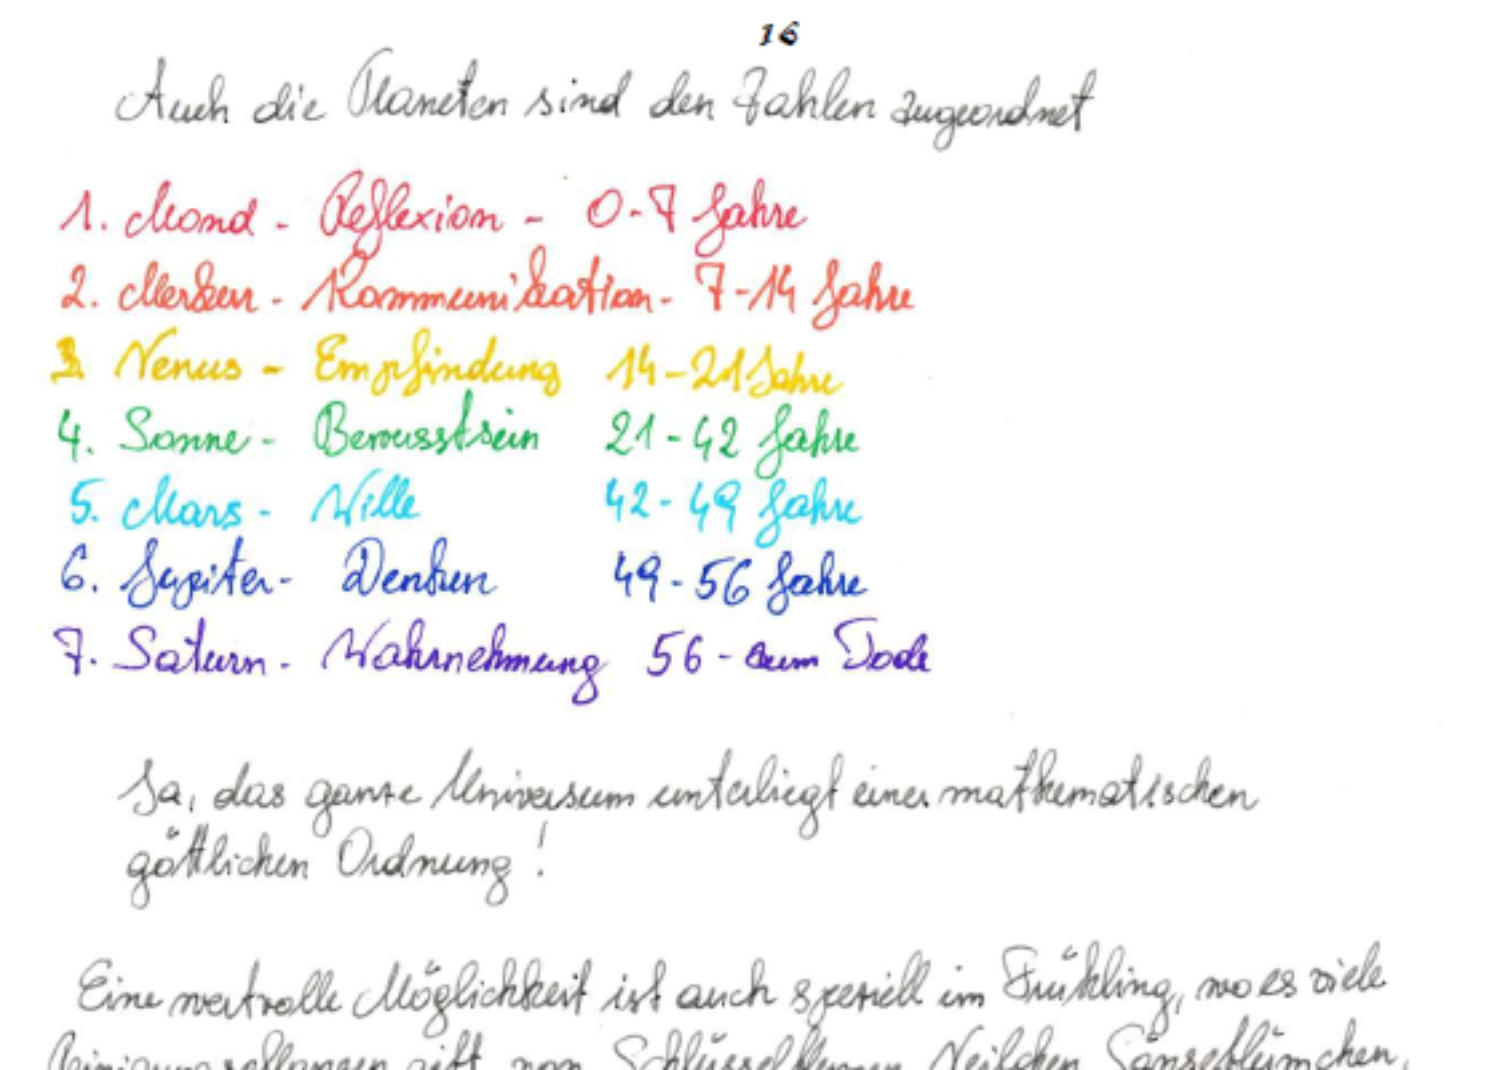 16
Auch die Planeten sind den Zahlen zugeordnet
1. Mond - Reflexion - 0-7 Jahre
2. Merkur - Kommunikation - 7-14 Jahre
3 Venus - Empfindung 14-21 Jahre
4. Sonne - Bewusstsein 21-42 Jahre
5. Mars - Wille 42-49 Jahre
6. Jupiter - Denken 49-56 Jahre
7. Saturn - Wahrnehmung 56 - zum Tode
Ja, das ganze Universum unterliegt einer mathematischen
göttlichen Ordnung!
Eine wertvolle Möglichkeit ist auch speziell im Frühling, wo es viele
Reinigungspflanzen gibt, von Schlüsselblumen Veilchen Gänseblümchen,